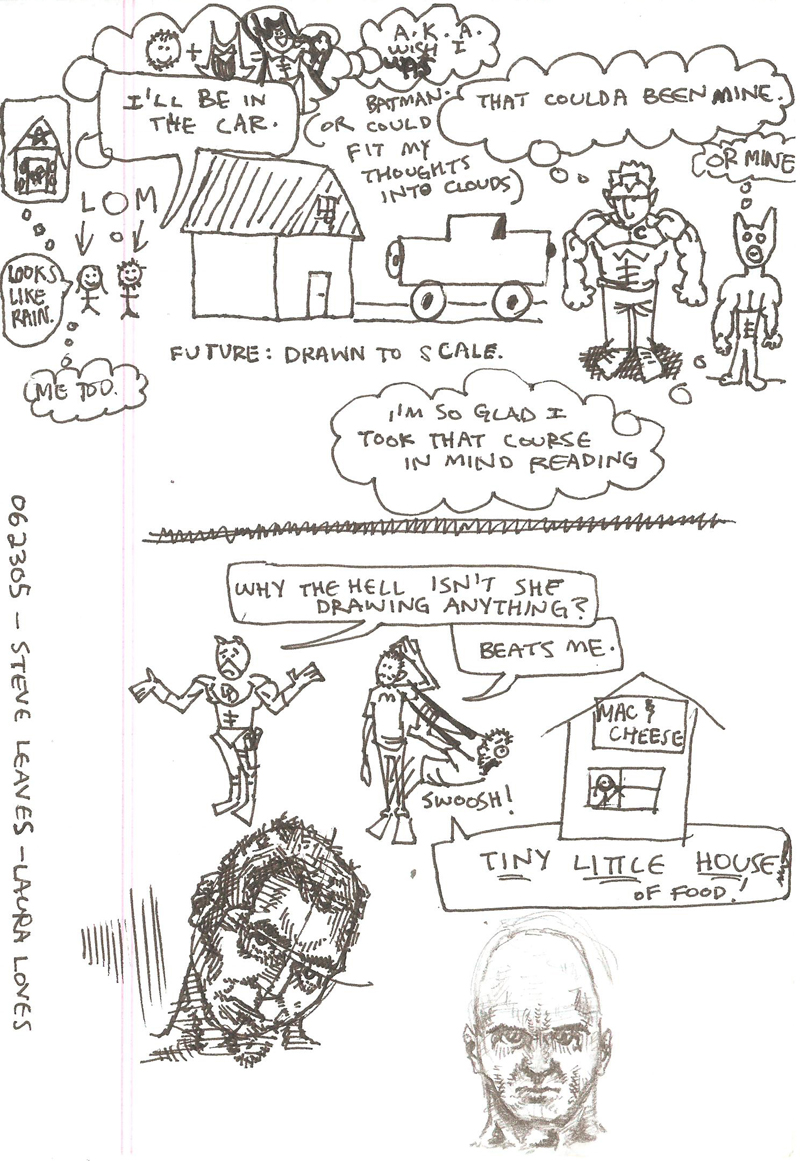 A.K.A.
WISH I
WAS
BATMAN.
(OR COULD
FIT MY
THOUGHTS
INTO CLOUDS)
I'LL BE IN
THE CAR.
THAT COULDA BEEN MINE.
(OR MINE
L O M
LOOKS
LIKE
RAIN.
ME TOO.
FUTURE: DRAWN TO SCALE.
I'M SO GLAD I
TOOK THAT COURSE
IN MIND READING
WHY THE HELL ISN'T SHE
DRAWING ANYTHING?
BEATS ME.
MAC &
CHEESE
SWOOSH!
TINY LITTLE HOUSE
OF FOOD!
062305 – STEVE LEAVES – LAURA LOVES